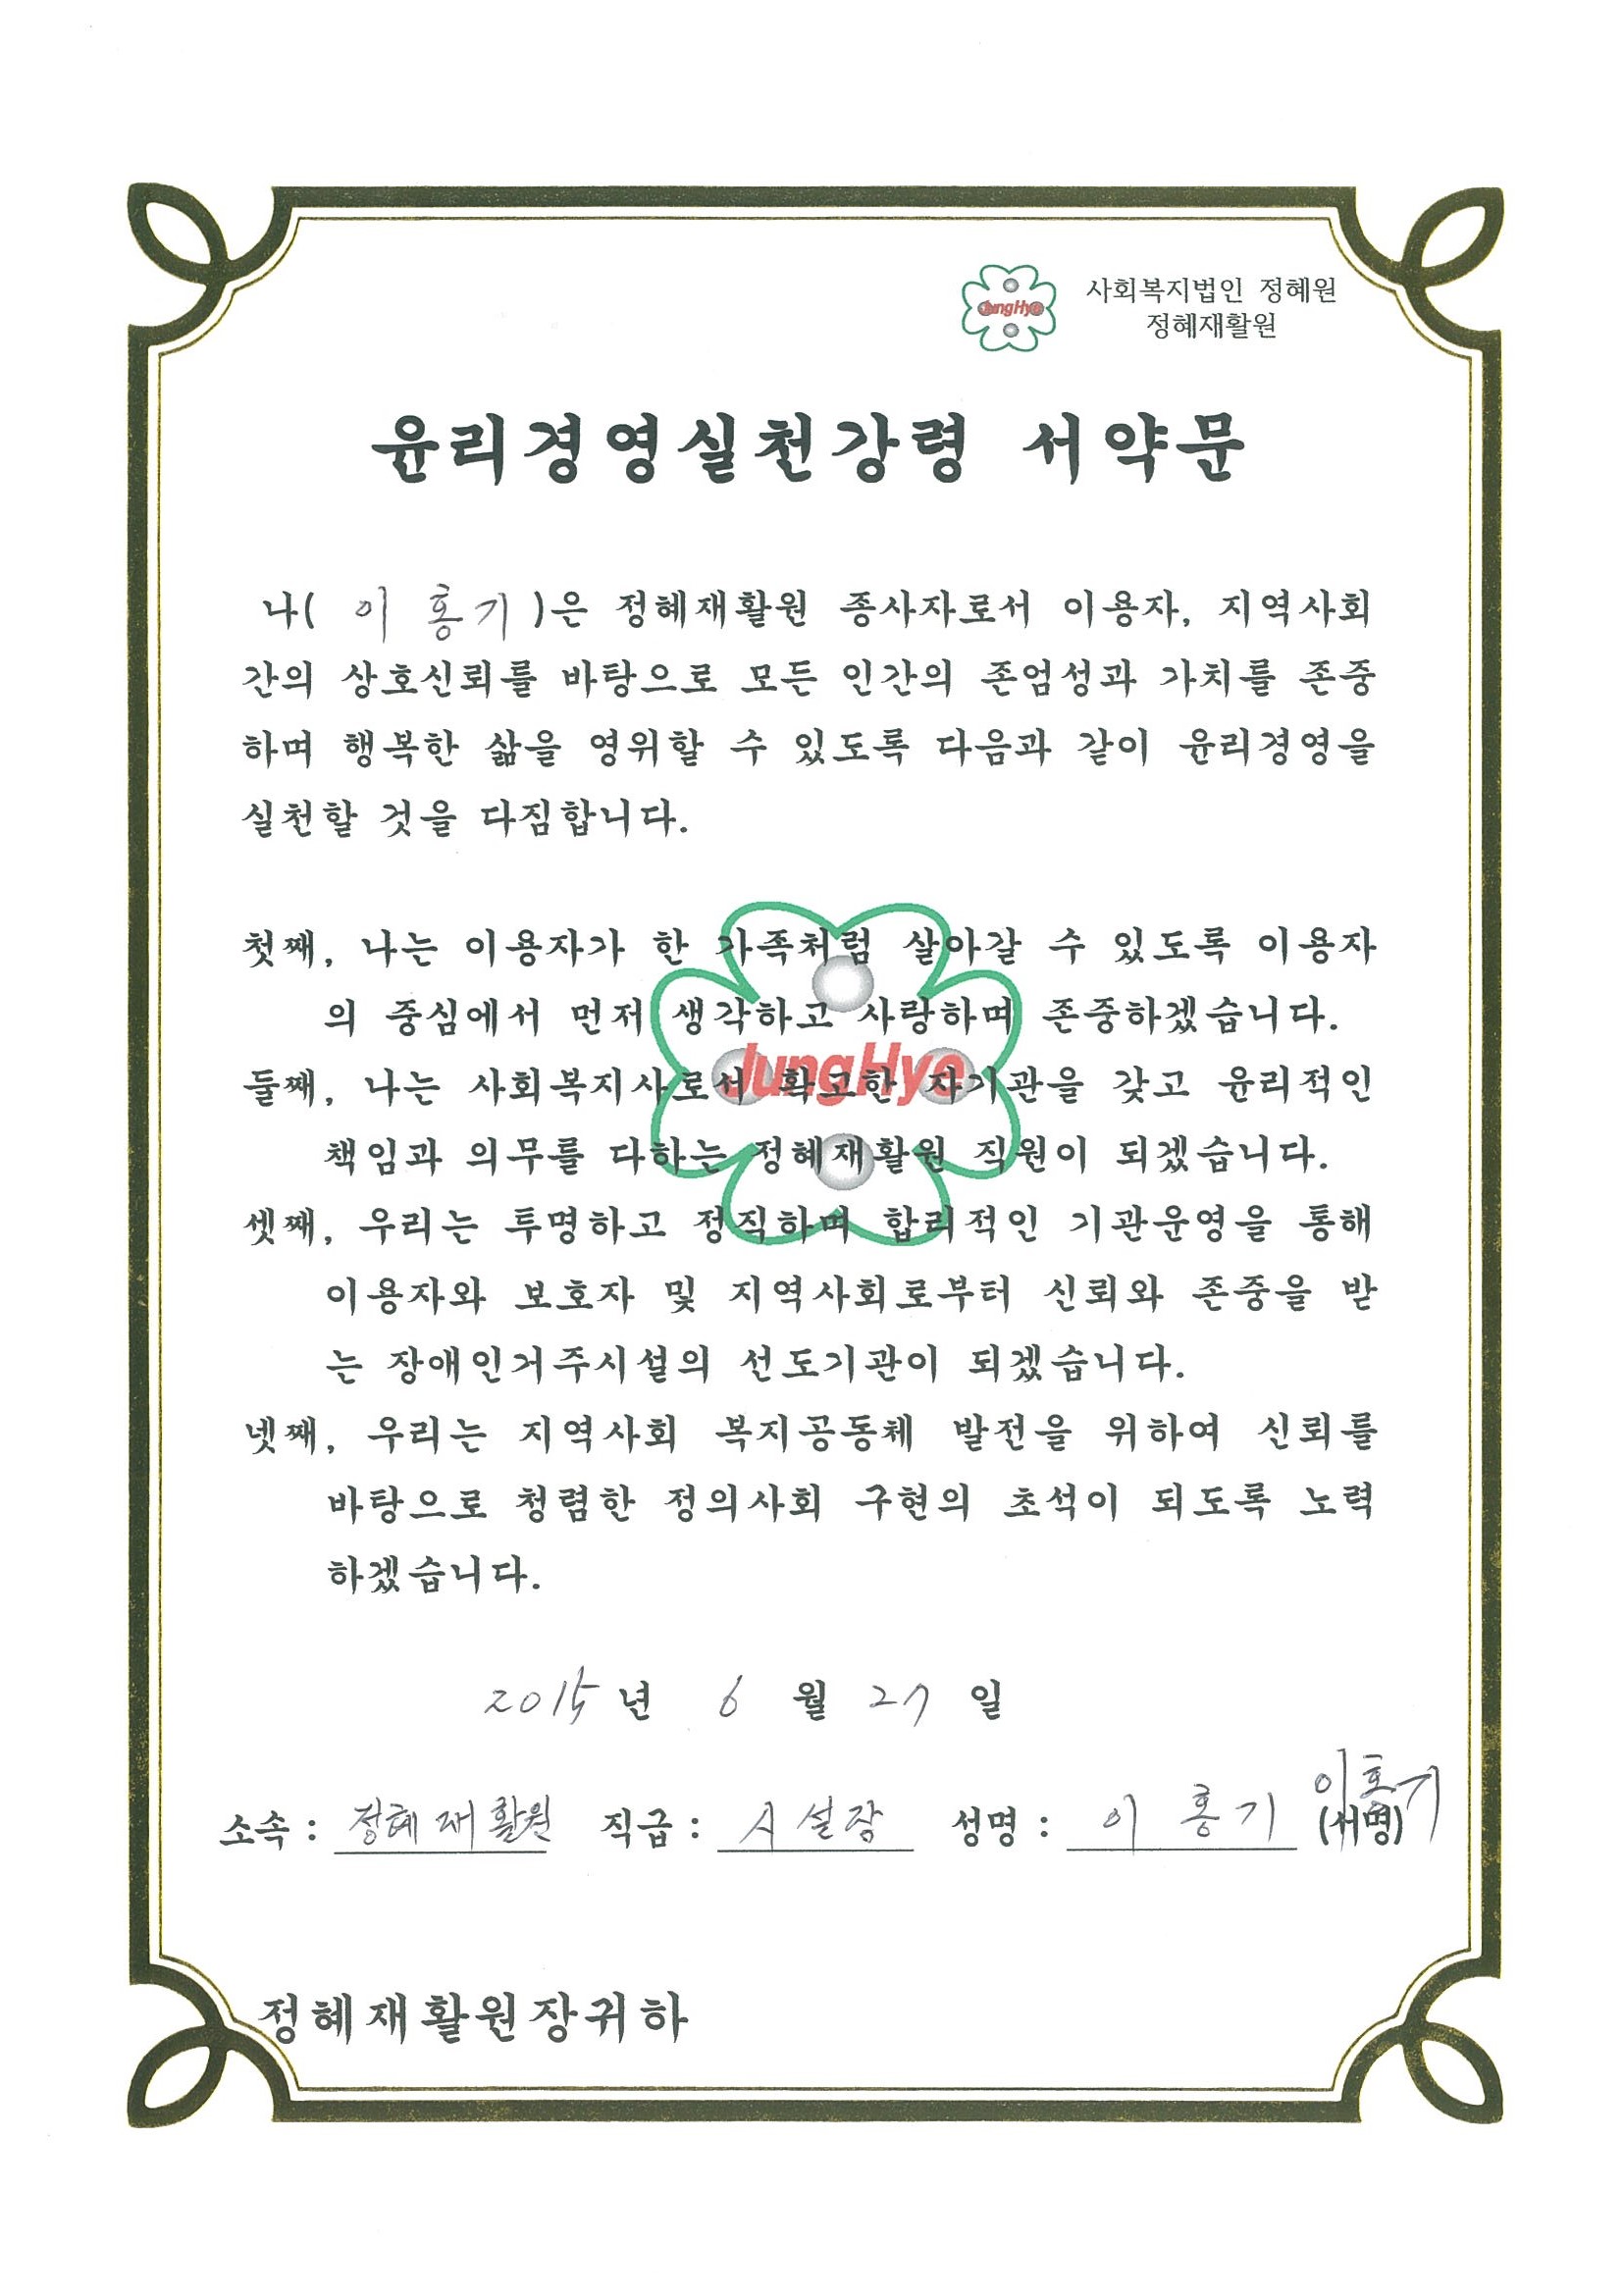 JungHye
사회복지법인 정혜원
정혜재활원
윤리경영실천강령 서약문
나( 이 홍 기 )은 정혜재활원 종사자로서 이용자, 지역사회
간의 상호신뢰를 바탕으로 모든 인간의 존엄성과 가치를 존중
하며 행복한 삶을 영위할 수 있도록 다음과 같이 윤리경영을
실천할 것을 다짐합니다.
첫째, 나는 이용자가 한 가족처럼 살아갈 수 있도록 이용자
의 중심에서 먼저 생각하고 사랑하며 존중하겠습니다.
JungHye
둘째, 나는 사회복지사로서 확고한 자기관을 갖고 윤리적인
책임과 의무를 다하는 정혜재활원 직원이 되겠습니다.
셋째, 우리는 투명하고 정직하며 합리적인 기관운영을 통해
이용자와 보호자 및 지역사회로부터 신뢰와 존중을 받
는 장애인거주시설의 선도기관이 되겠습니다.
넷째, 우리는 지역사회 복지공동체 발전을 위하여 신뢰를
바탕으로 청렴한 정의사회 구현의 초석이 되도록 노력
하겠습니다.
2015 년 6 월 27 일
소속 : 정혜재활원 직급 : 시설장 성명 : 이 홍 기 (서명) 이홍기
정혜재활원장귀하